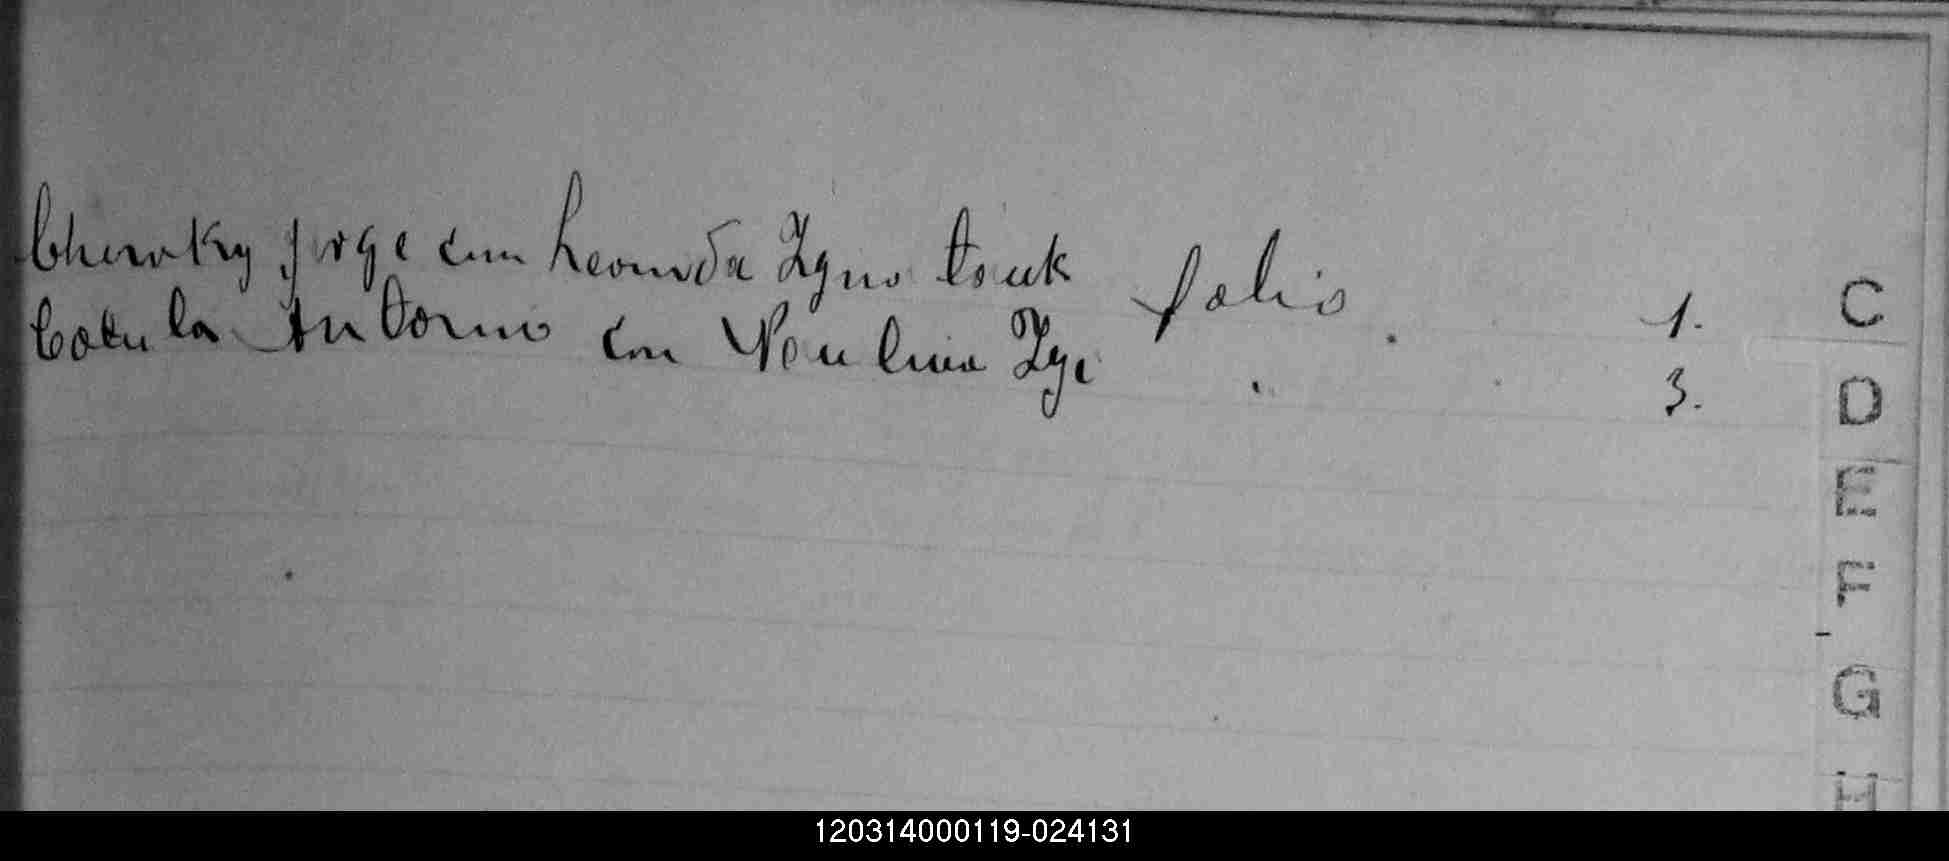 Chewky Jorge con Leonida Zgnotouk folio 1.
Cocula Antonio con Paulina Zye " 3.
C
D
E
F
G
H
120314000119-024131